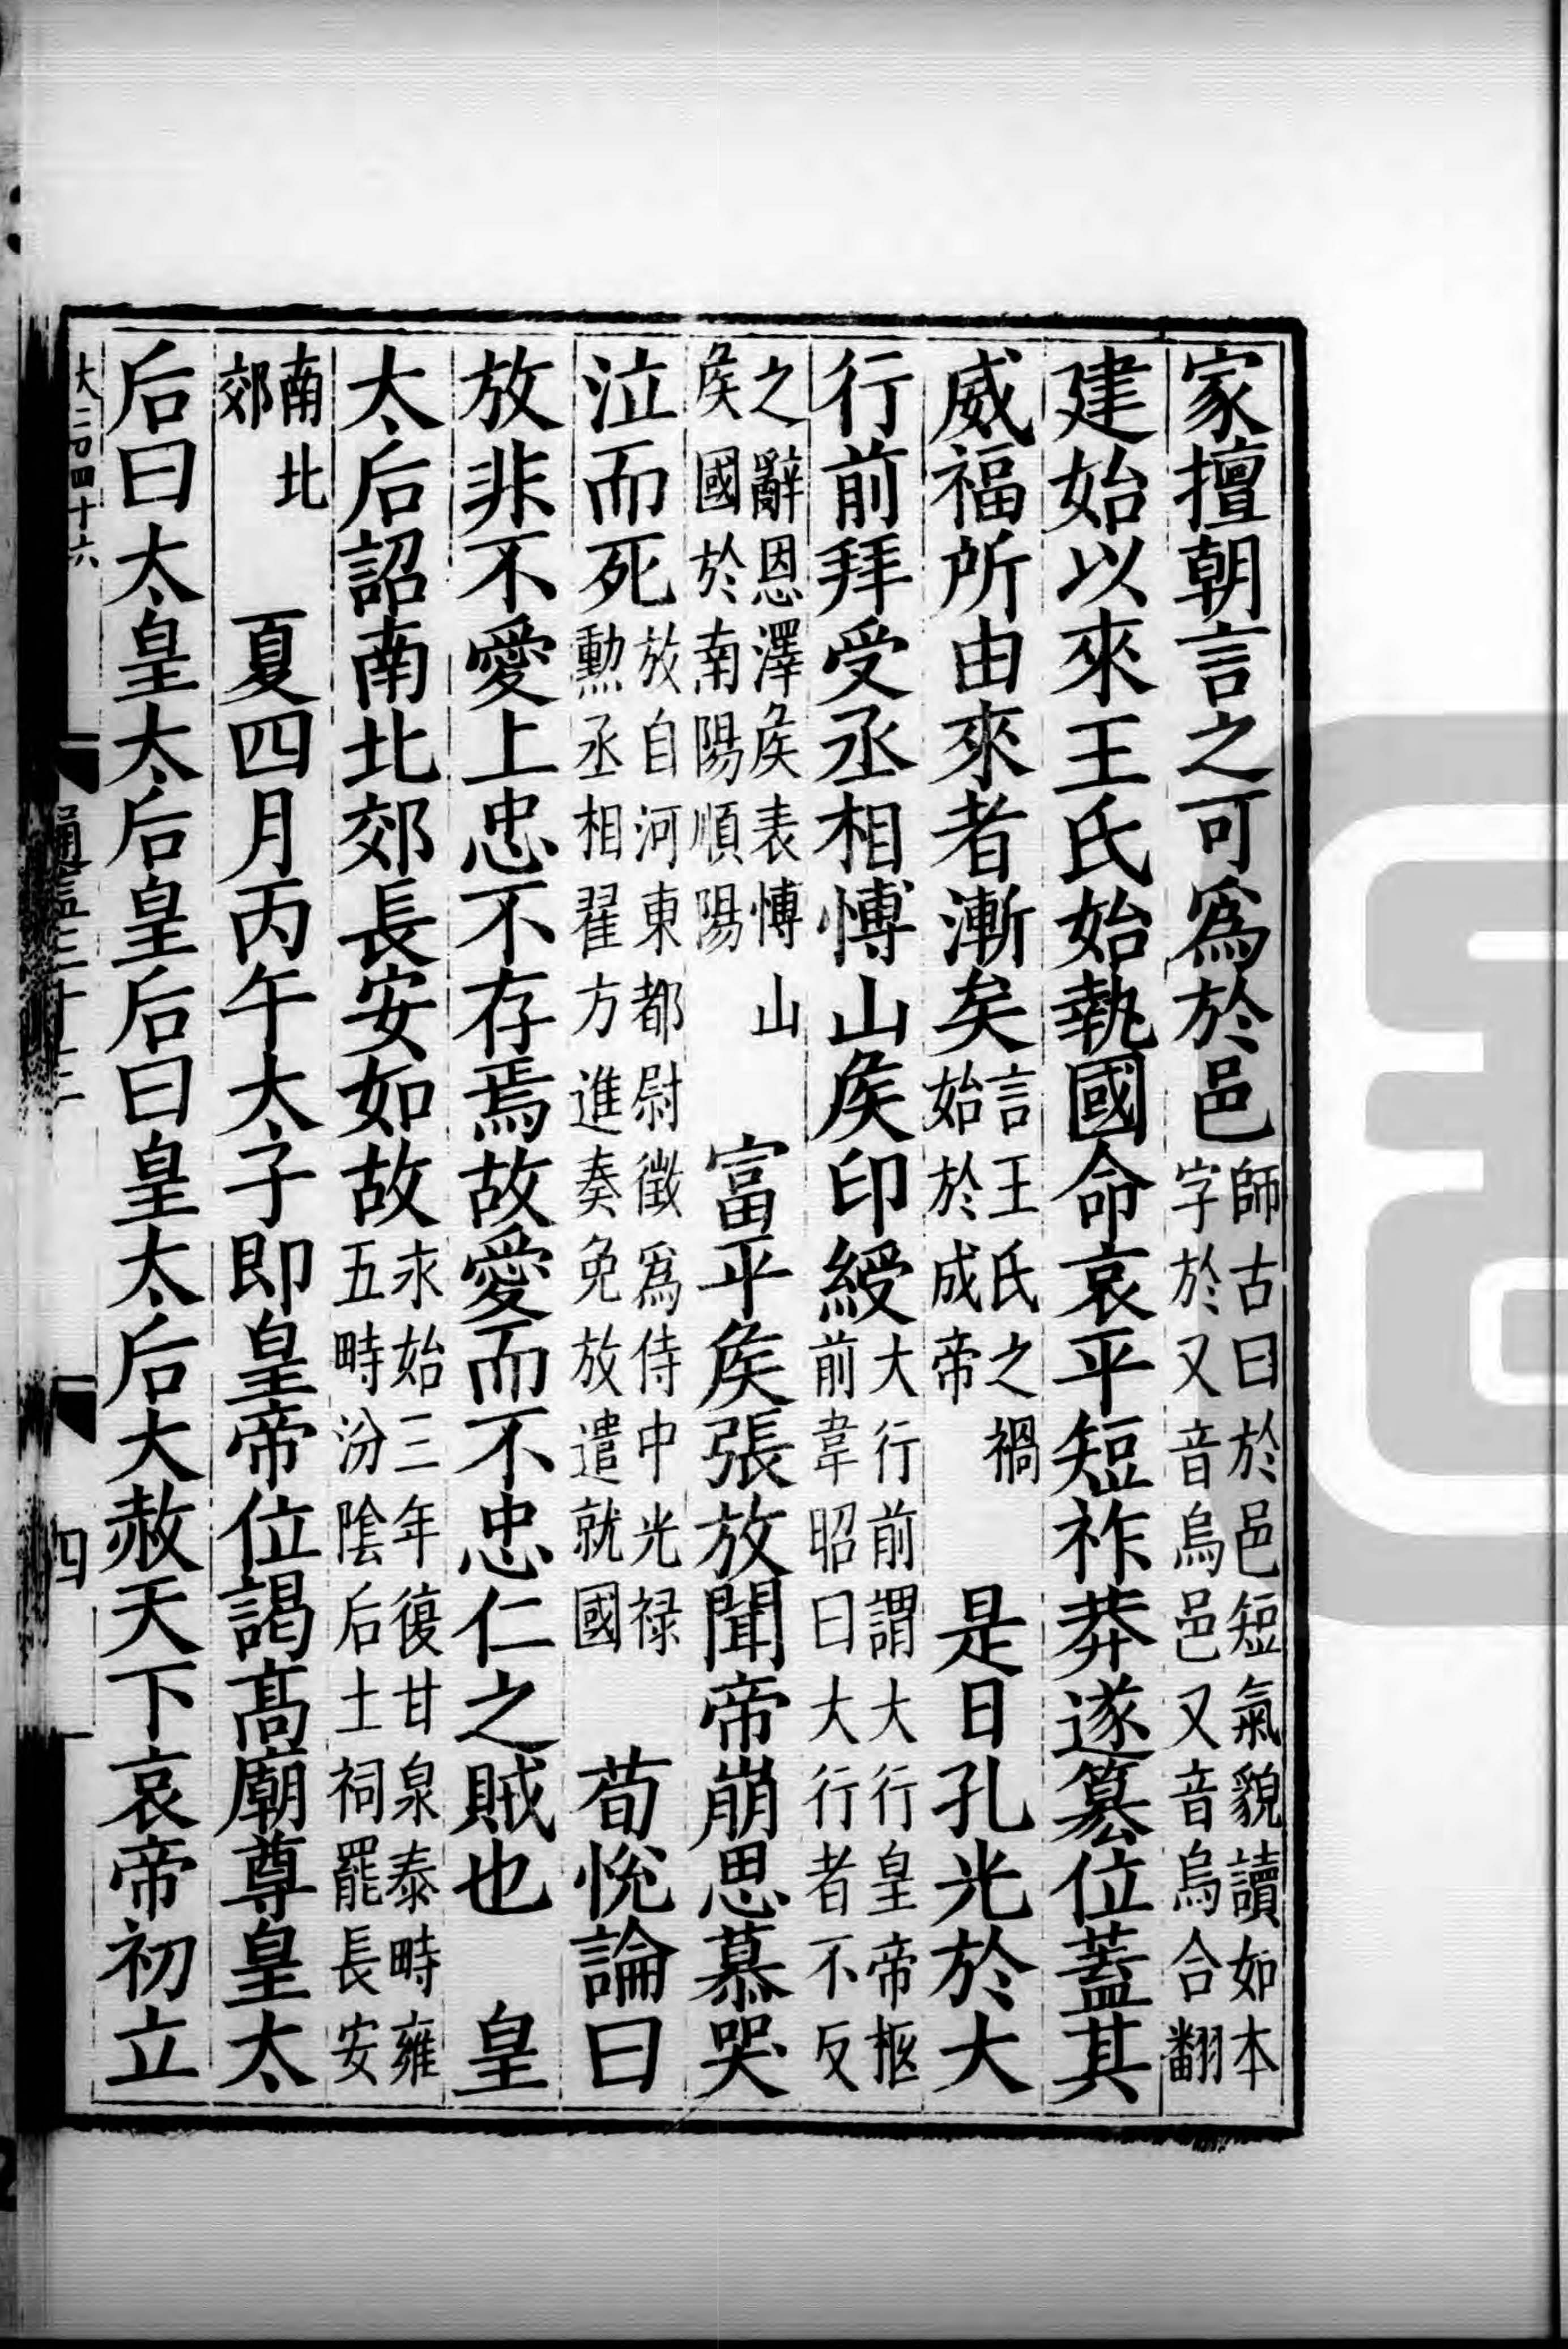 家擅朝言之可爲於邑師古曰於邑短氣貌讀如本字於又音烏邑又音烏合翻
建始以來王氏始執國命哀平短祚莽遂簒位蓋其
威福所由來者漸矣言王氏之禍始於成帝 是日孔光於大
行前拜受丞相愽山矦印綬大行前謂大行皇帝柩前韋昭曰大行者不反
之辭恩澤矦表愽山矦國於南陽順陽 富平矦張放聞帝崩思慕哭
泣而死放自河東都尉徵爲侍中光禄勲丞相翟方進奏免放遣就國 荀悅論曰
放非不愛上忠不存焉故愛而不忠仁之賊也 皇
太后詔南北郊長安如故永始三年復甘泉泰畤雍五畤汾隂后土祠罷長安
南北郊 夏四月丙午太子即皇帝位謁髙廟尊皇太
后曰太皇太后皇后曰皇太后大赦天下哀帝初立
大二百四十六
通鑑三十三
四